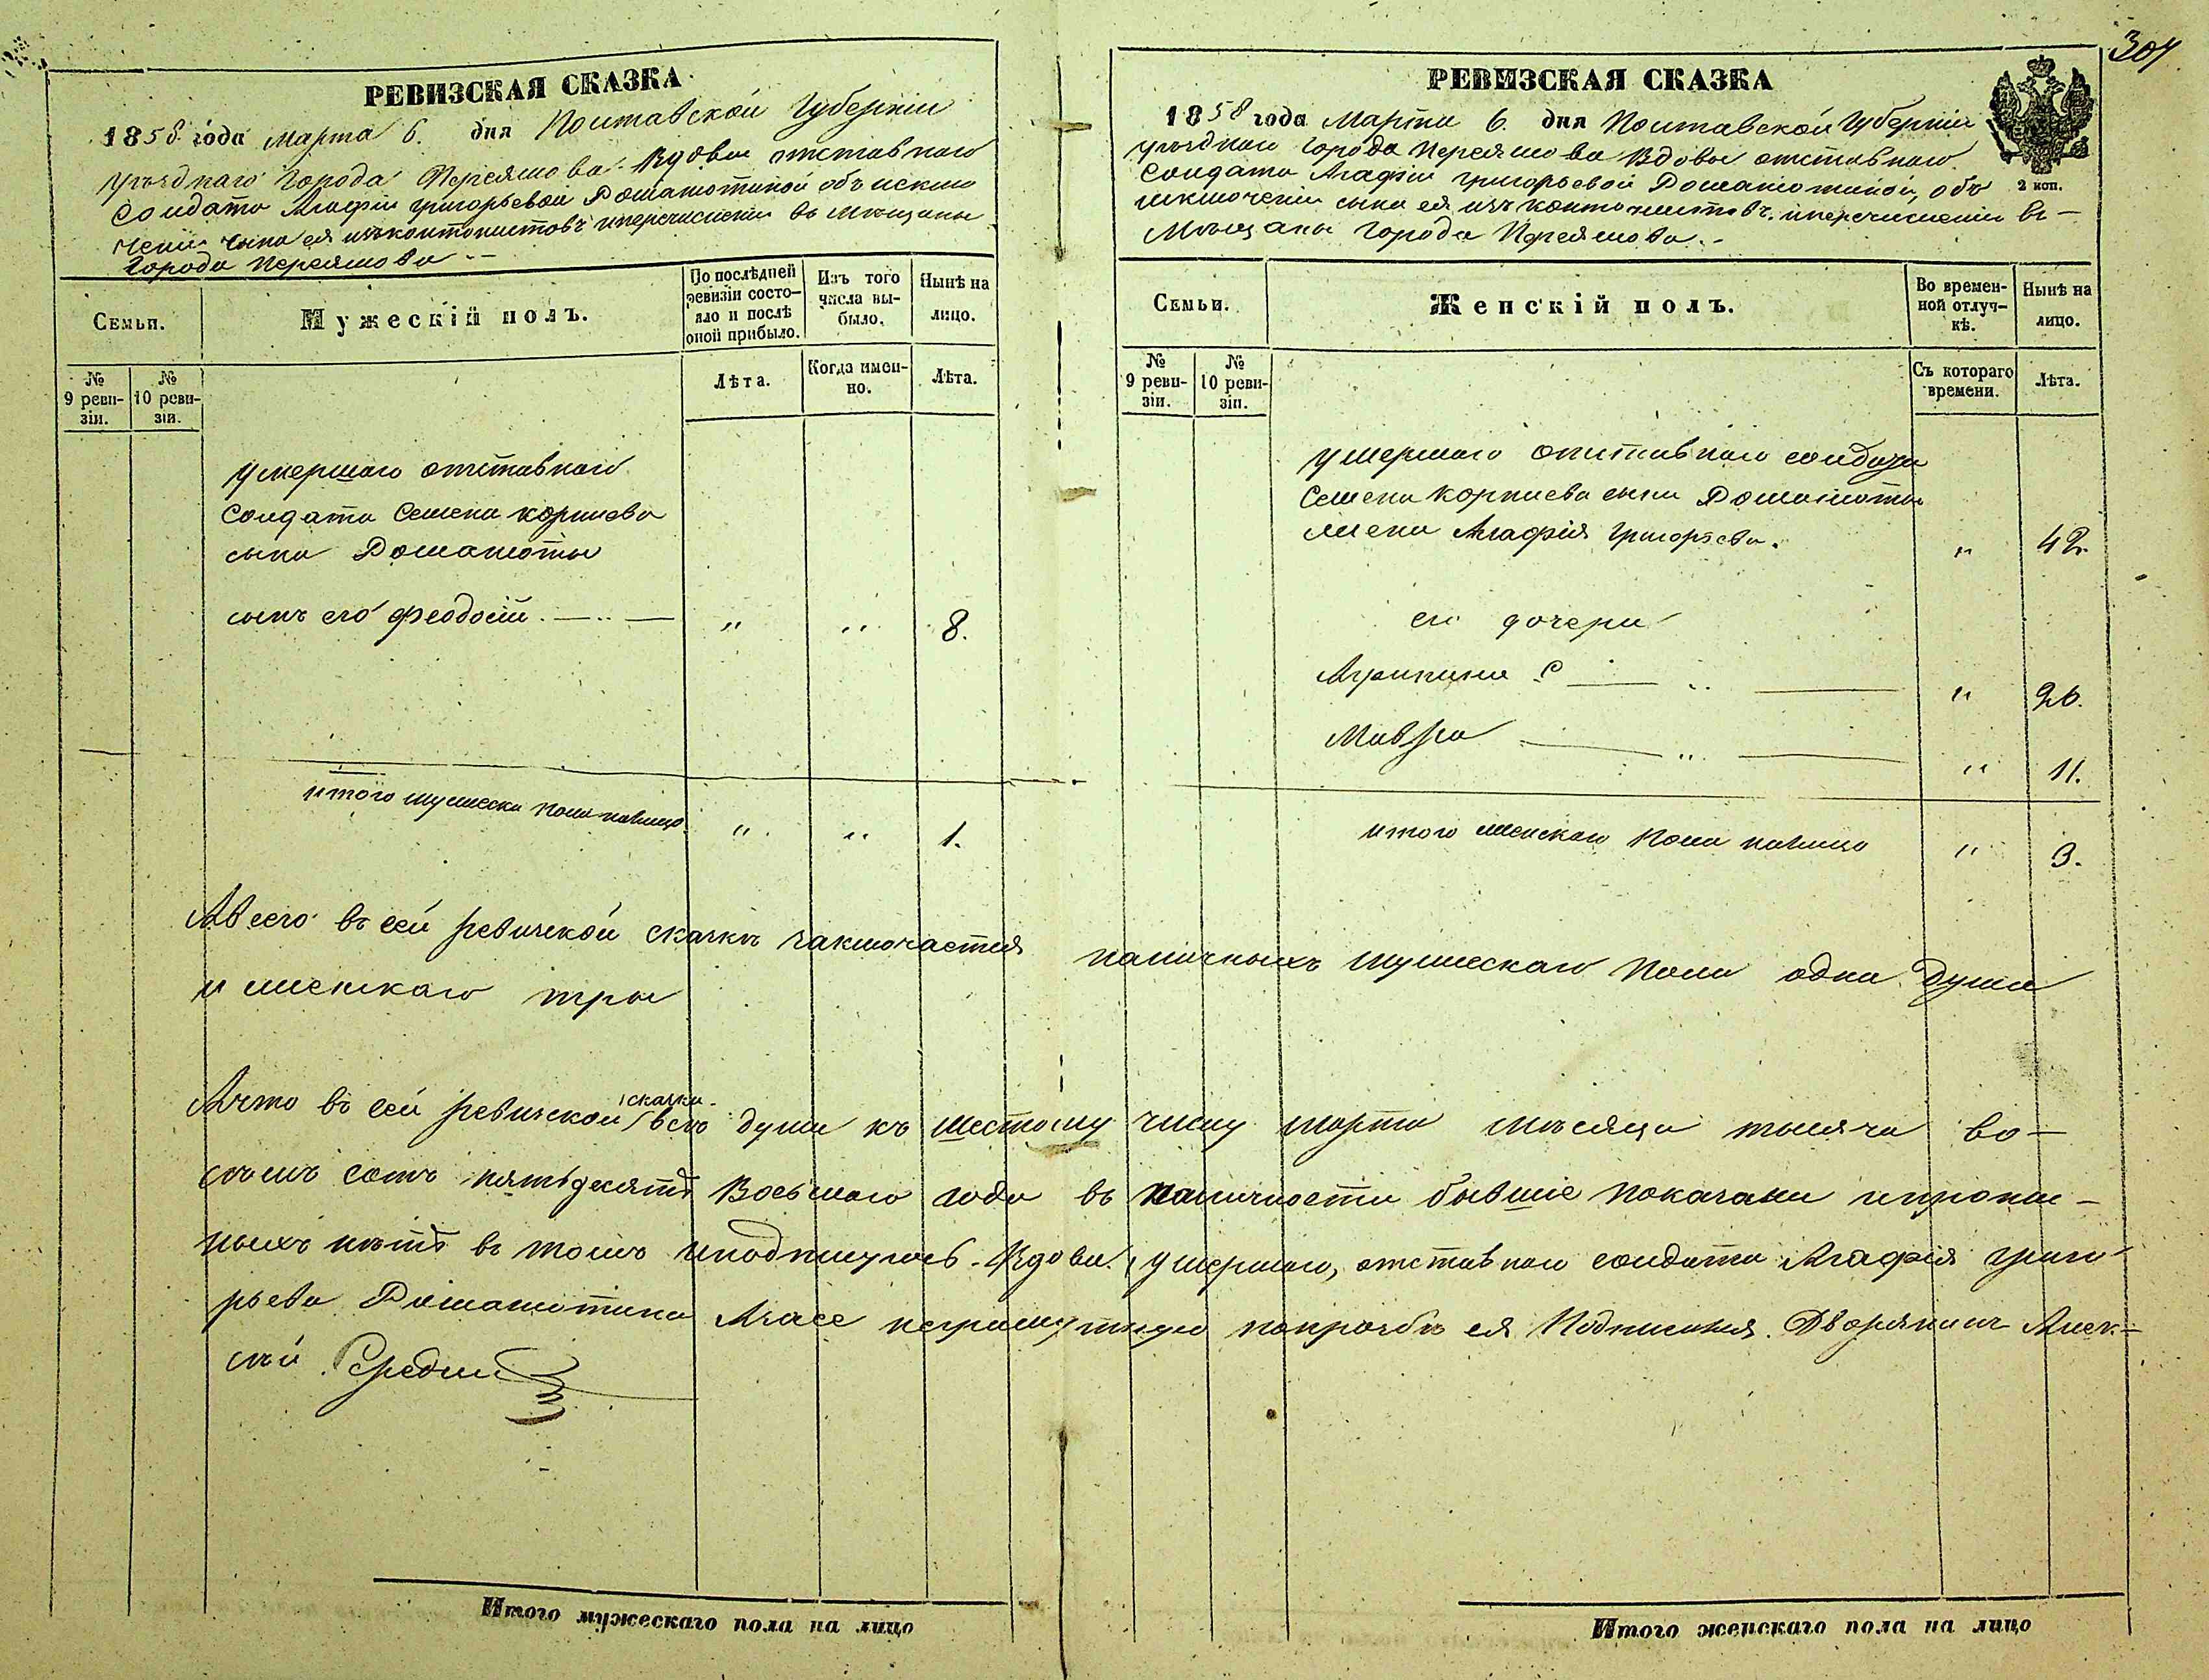 304
РЕВИЗСКАЯ СКАЗКА
1858 года Марта 6. дня Полтавской Губерніи
уѣзднаго Города Переяслова Вдовы отставнаго
Солдата Агафіи Григорьевой Домантотиной объ исклю
ченіи сына ея изъ кантонистовъ и перечисленіи въ мѣщаны
Города Переяслова.-
Семьи.
Мужескій полъ.
По послѣдней ревизіи состо-
яло и послѣ оной прибыло.
Изъ того числа вы-
было.
Нынѣ на лицо.
№ 9 реви-
зіи.
№ 10 реви-
зіи.
Лѣта.
Когда имен-
но.
Лѣта.
умершаго отставнаго
Солдата Семена Корніева
сына
сынъ его Феодосій. — „ — „ „ 8.
итого мужеска пола налицо. „ „ 1.
РЕВИЗСКАЯ СКАЗКА
2 коп.
1858 года Марта 6. дня Полтавской Губерніи
уѣзднаго Города Переяслова Вдовы отставнаго
Солдата Агафіи Григорьевой объ
исключеніи сына ея изъ кантонистовъ и перечисленіи въ —
Мѣщаны Города Переяслова.-
Семьи.
Женскій полъ.
Во времен-
ной отлуч-
кѣ.
Нынѣ на лицо.
№ 9 реви-
зіи.
№ 10 реви-
зіи.
Съ котораго времени.
Лѣта.
умершаго отставнаго солдата
Семена Корніева сына
жена Агафія Григорьева. „ 42.
его дочери
Агрипина — „ — „ 26.
Мавра — „ — „ 11.
итого женскаго пола налицо „ 3.
А всего въ сей ревизской сказкѣ заключается наличныхъ мужескаго пола одна душа
и женскаго три
А что въ сей ревизской сказки всѣ души къ шестому числу марта мѣсяца тысяча во-
съмъ сотъ пятьдесятъ Восьмаго года въ наличности бывшіе показаны и пропис-
ныхъ нѣтъ въ томъ и подпишуюсь. Вдова умершаго, отставнаго солдата Агафія Григо
рьева а за нее неграмотную по прозбѣ ея Подписался. Дворянинъ Алек-
сѣй
Итого мужескаго пола на лицо
Итого женскаго пола на лицо